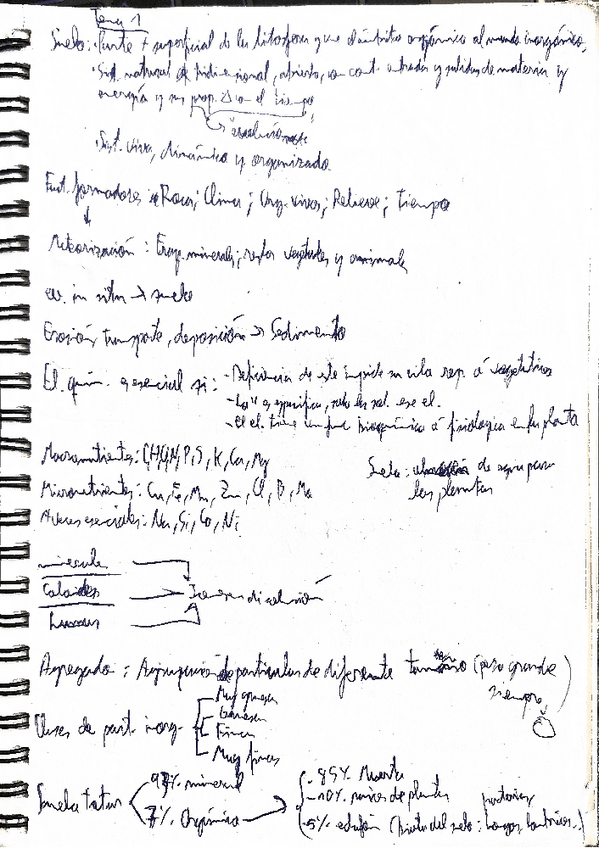 Tema 1
Suelo: · Parte + superficial de la litosfera y une el ámbito orgánico al mundo inorgánico,
· Sist. natural tridimensional, abierto, con cont. entradas y salidas de materia y
energía y sus prop. Δ con el tiempo
· Sist. vivo, dinámico y organizado
Fact. formadores: Roca; Clima; Org. vivos; Relieve; Tiempo
Meteorización: Frag. minerales; restos vegetales y animales
in situ → suelo
Erosión, transporte, deposición → Sedimento
El. quím. esencial si: - Deficiencia de este impide su vida rep. ó vegetativa
- La es específica, solo la sol. ese el.
- El el. tiene un func bioquímica ó fisiológica en la planta
Macronutrientes: C, H, O, N, P, S, K, Ca, Mg
Suelo: de agua para
las plantas
Micronutrientes: Cu, Fe, Mn, Zn, Cl, B, Mo
A veces esenciales: Na, Si, Co, Ni
minerales
Coloides → Iones en disolución
humus
Agregado: Agrupación de partículas de diferente tamaño (peso grande
siempre)
Clases de part. inorg.
Muy gruesa
Gruesa
Finas
Muy finas
Suelo
93% mineral
7% Orgánico →
- 85% Muerta
- 10% raíces de plantas
- 5% edafón (biota del suelo: hongos, bacterias..)